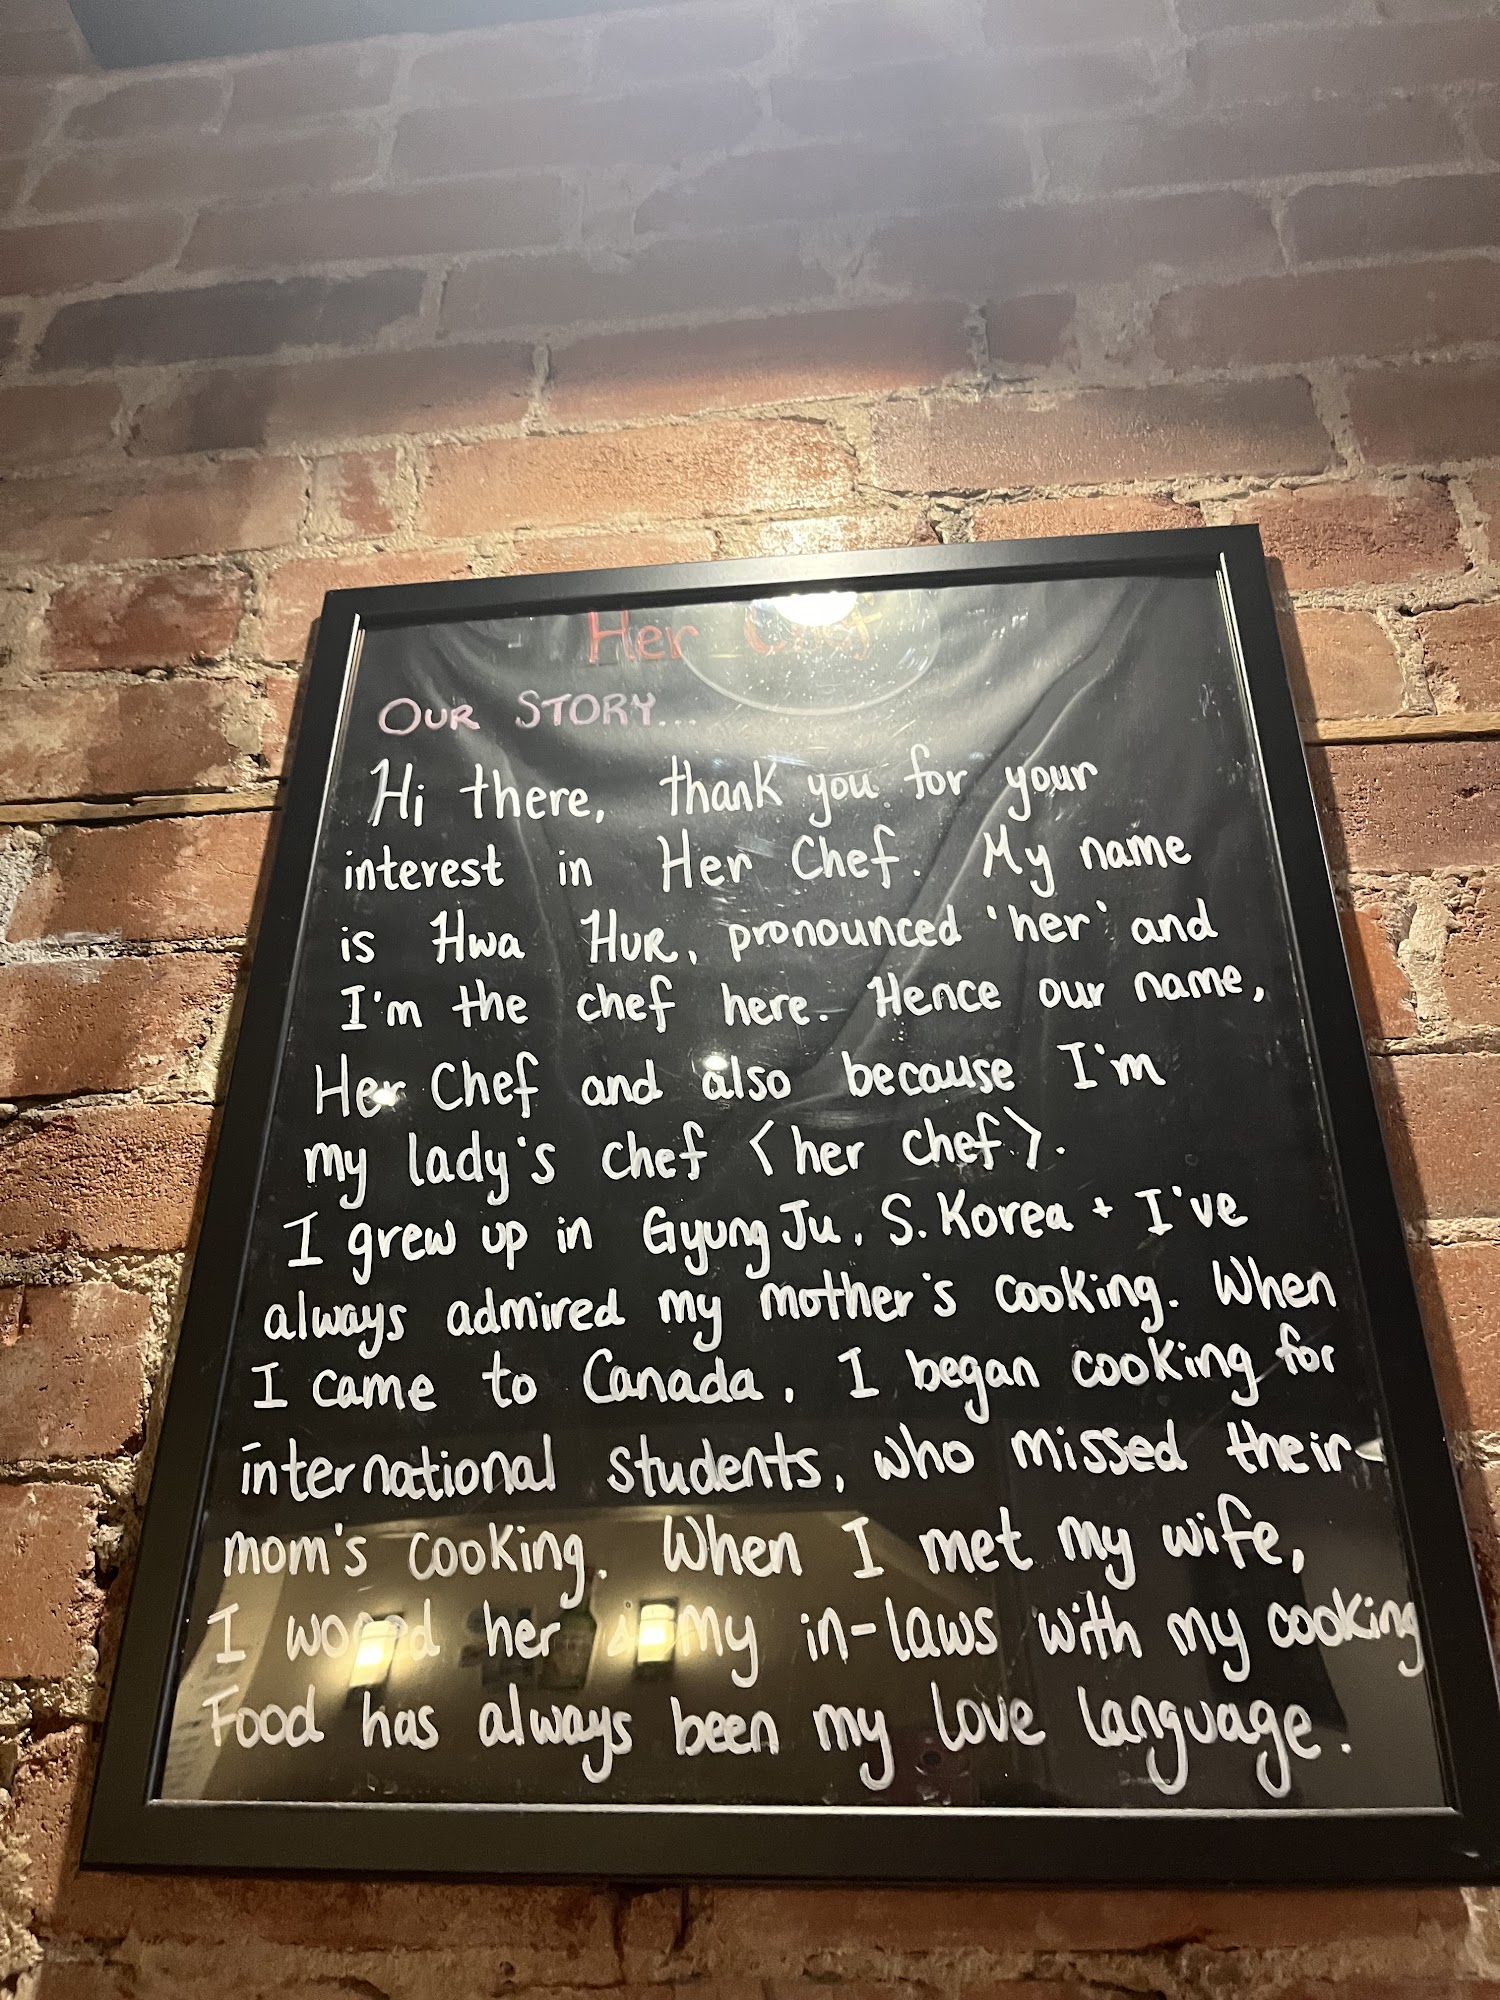 Her Chef
OUR STORY...
Hi there, thank you for your
interest in Her Chef. My name
is Hwa HUR, pronounced 'her' and
I'm the chef here. Hence our name,
Her Chef and also because I'm
my lady's chef <her chef>.
I grew up in GyungJu, S.Korea + I've
always admired my mother's cooking. When
I came to Canada, I began cooking for
international students, who missed their
mom's cooking. When I met my wife,
I her my in-laws with my cooking
Food has always been my love language.